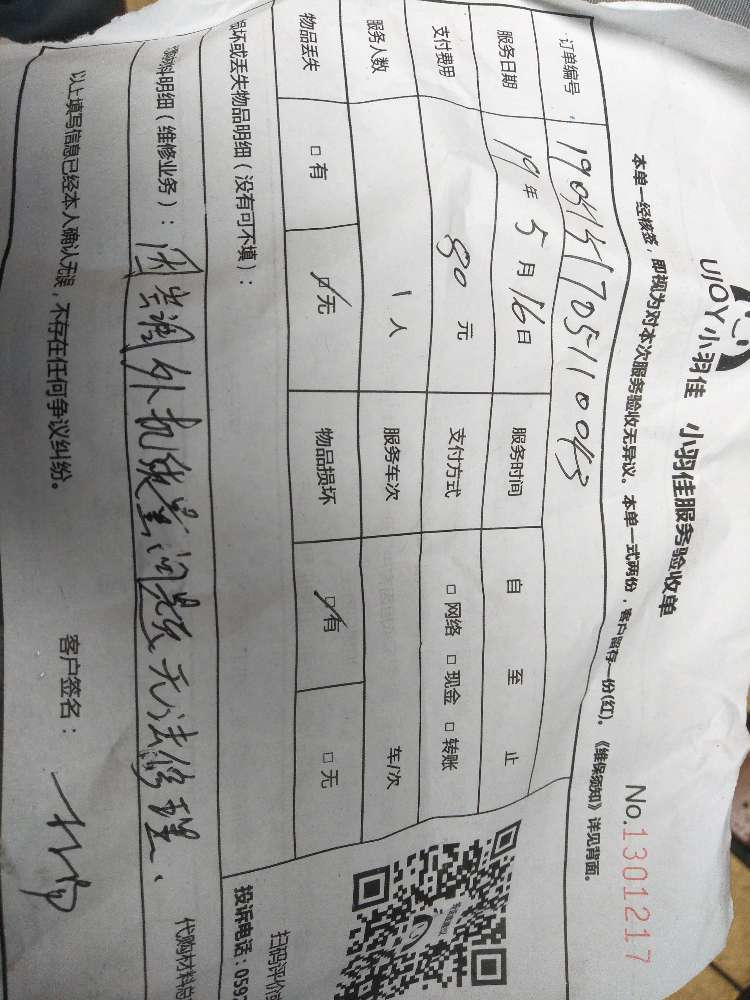 UIOY小羽佳 小羽佳服务验收单
No.1301217
本单一经核签,即视为对本次服务验收无异议。本单一式两份,客户留存一份(红)。《维保须知》详见背面。
订单编号
服务日期 19年5月16日 服务时间 自 至 止
支付费用 80元 支付方式 □网络 □现金 □转账
服务人数 1人 服务车次 车/次
物品丢失 □有 ☑无 物品损坏 ☑有 □无
损坏或丢失物品明细(没有可不填):
料明细(维修业务): 因空调外机线盖问题无法修理、
以上填写信息已经本人确认无误,不存在任何争议纠纷。
客户签名:
扫码评价
投诉电话:059
代购材料总